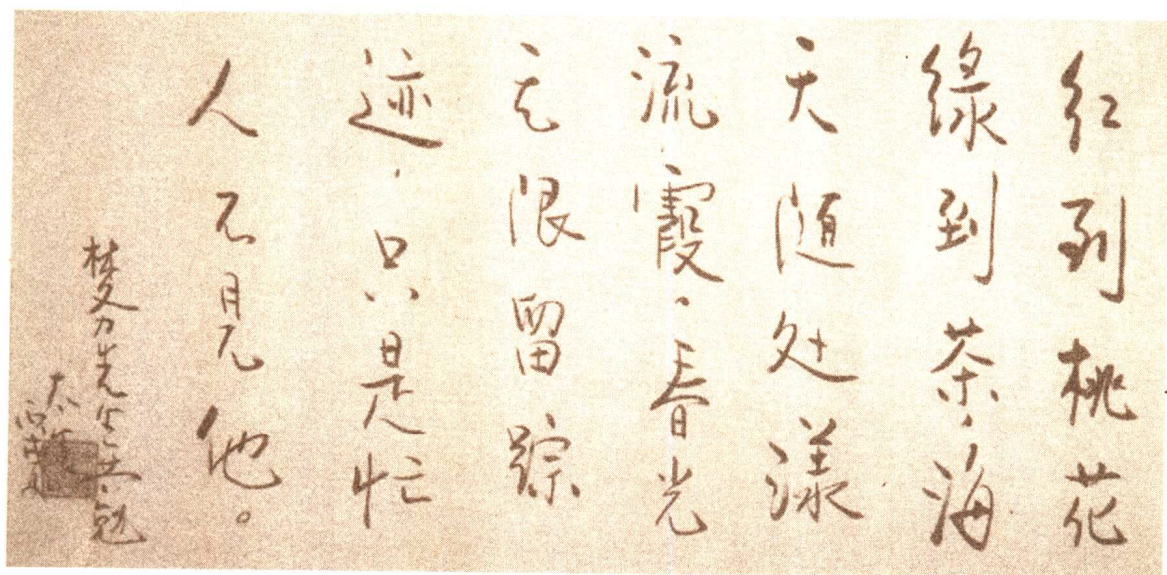 红到桃花
綠到茶，海
天随处漾
流霞。春光
无限留踪
迹，只是忙
人不见他。
先生共勉